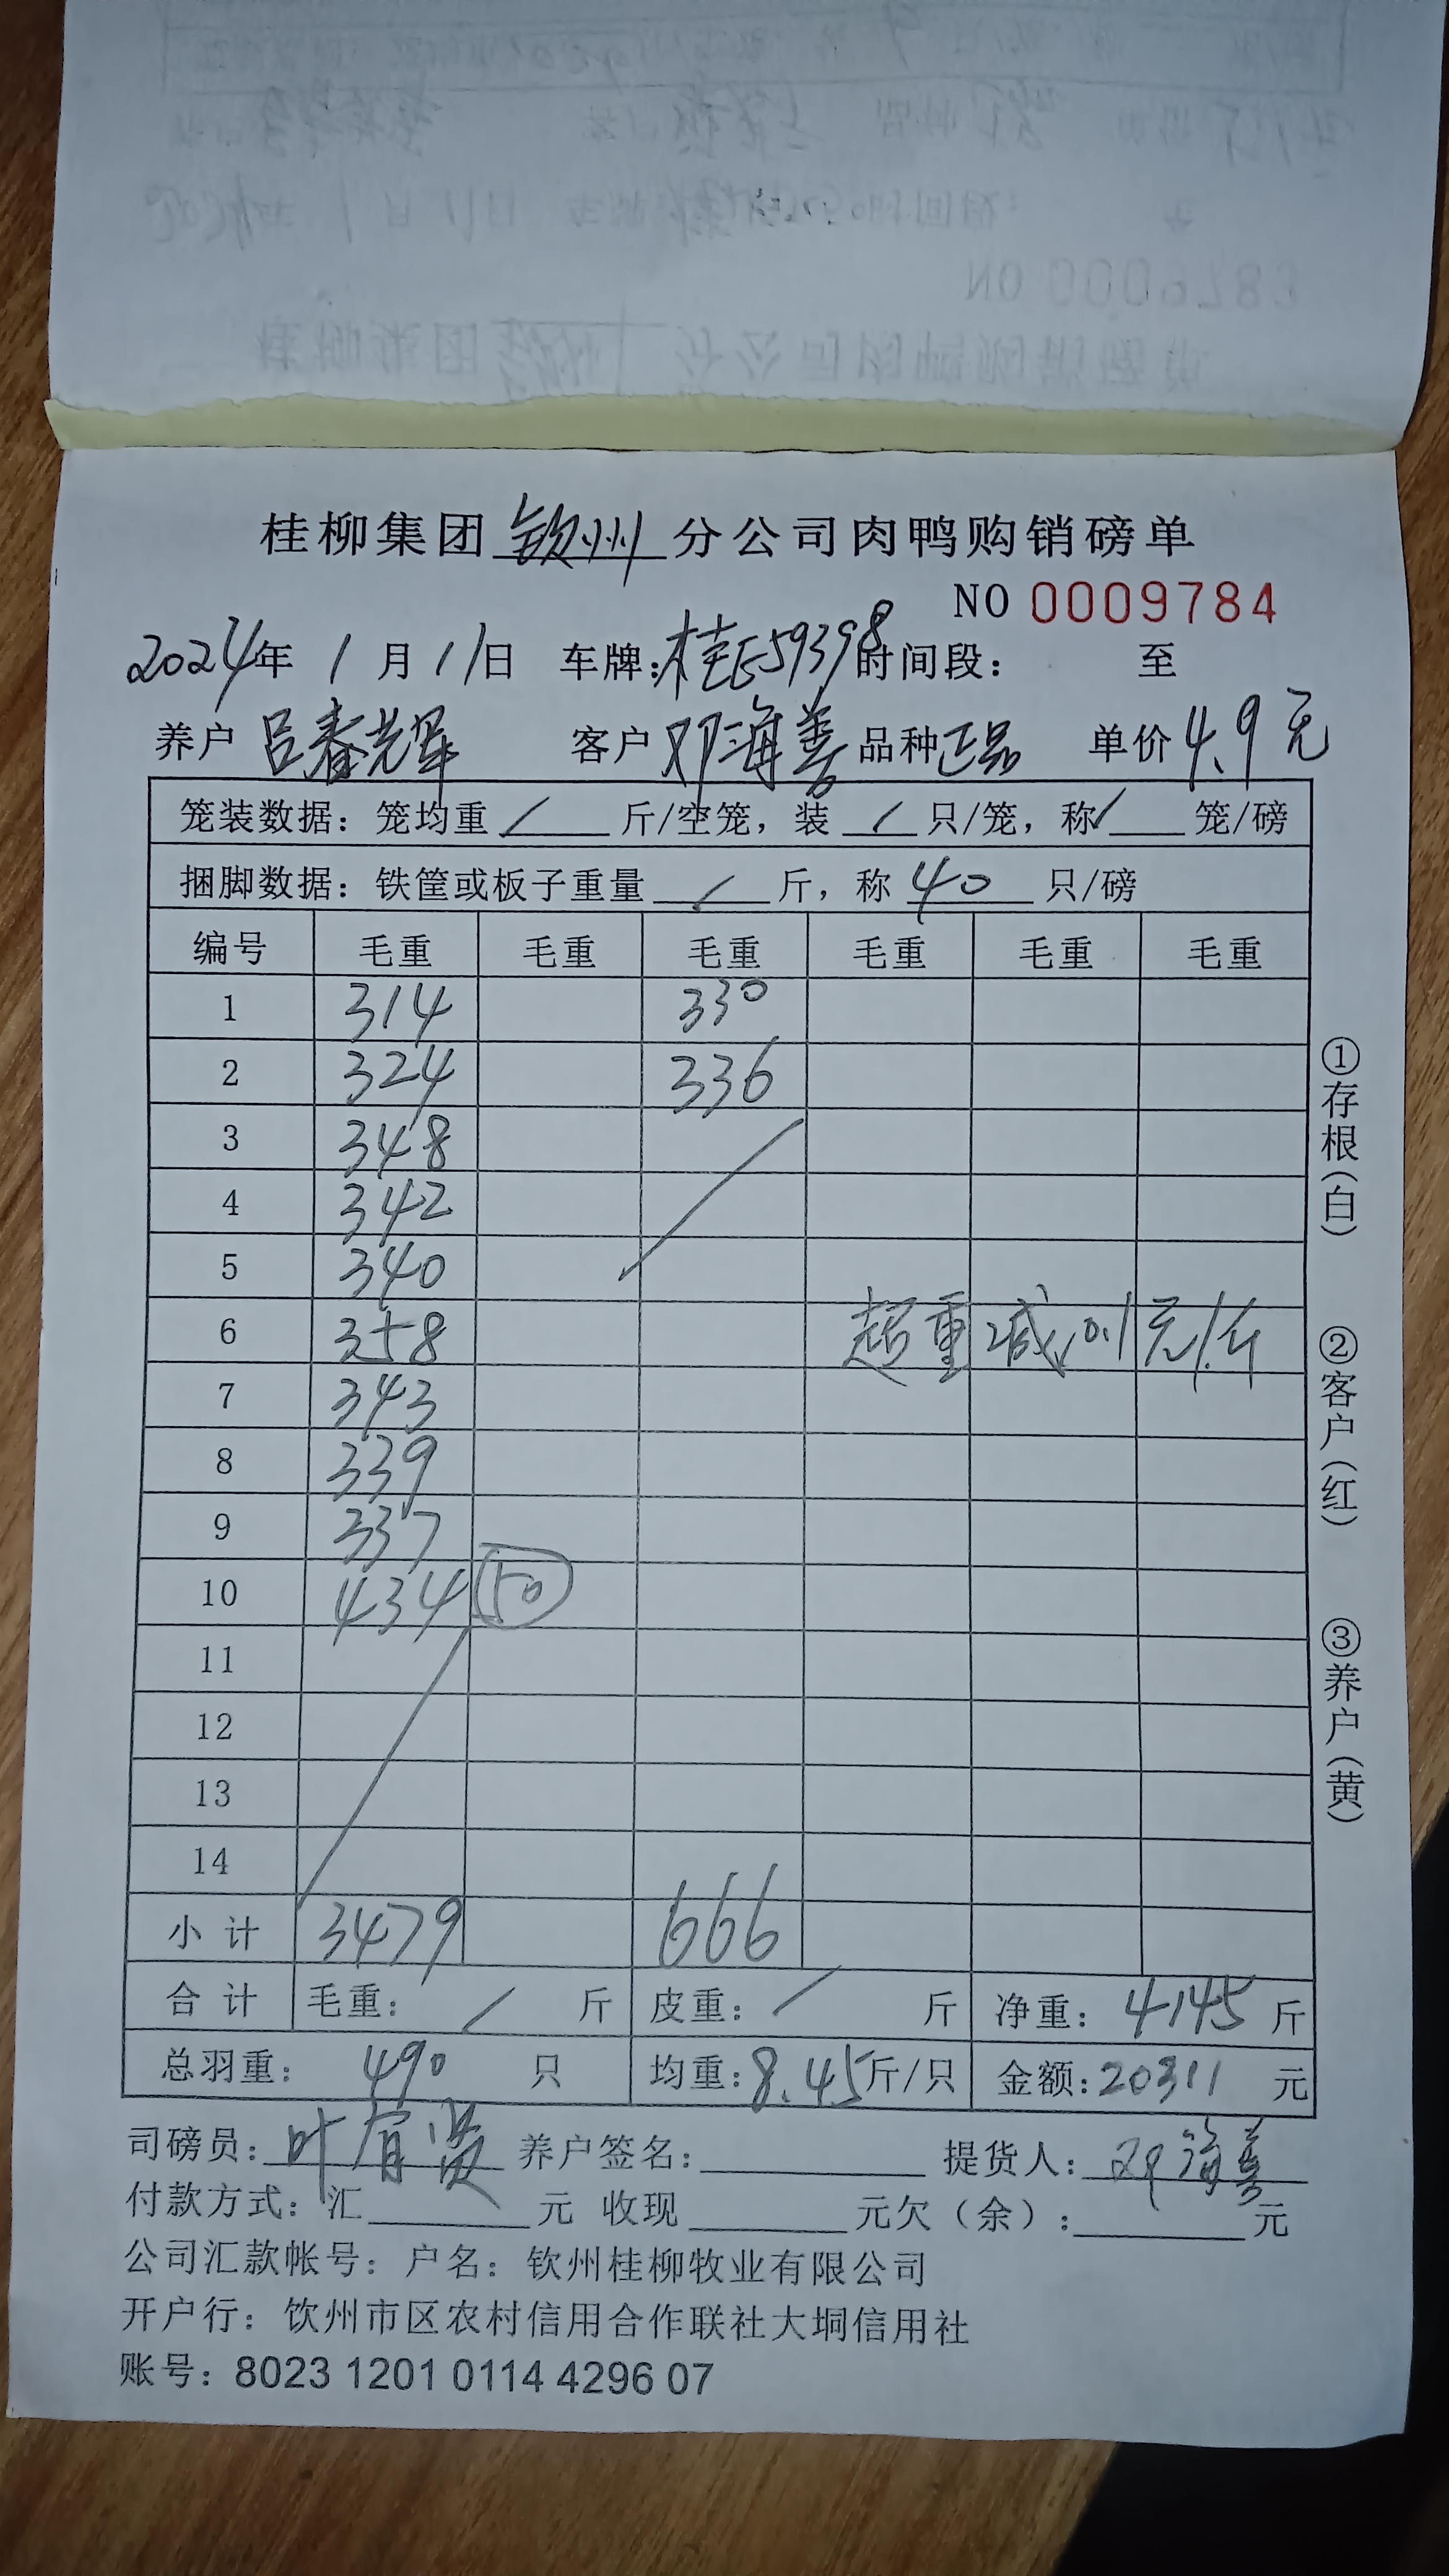 桂柳集团钦州分公司肉鸭购销磅单
NO 0009784
2024年 1月11日 车牌:桂E59398 时间段: 至
养户 吕春光辉 客户 邓海善 品种 正品 单价 4.9元
笼装数据: 笼均重 / 斤/空笼, 装 / 只/笼, 称 / 笼/磅
捆脚数据: 铁筐或板子重量 / 斤, 称 40 只/磅
编号 毛重 毛重 毛重 毛重 毛重 毛重
1 314 330
2 324 336
3 348
4 342
5 340
6 358 超重减0.1元/斤
7 343
8 339
9 337
10 434 50
11
12
13
14
小计 3479 666
合计 毛重: / 斤 皮重: / 斤 净重: 4145 斤
总羽重: 490 只 均重: 8.45 斤/只 金额: 20311 元
司磅员: 叶 养户签名: 提货人: 邓海善
付款方式: 汇 元 收现 元欠(余): 元
公司汇款帐号: 户名: 钦州桂柳牧业有限公司
开户行: 钦州市区农村信用合作联社大垌信用社
账号: 8023 1201 0114 4296 07
①存根(白)
②客户(红)
③养户(黄)